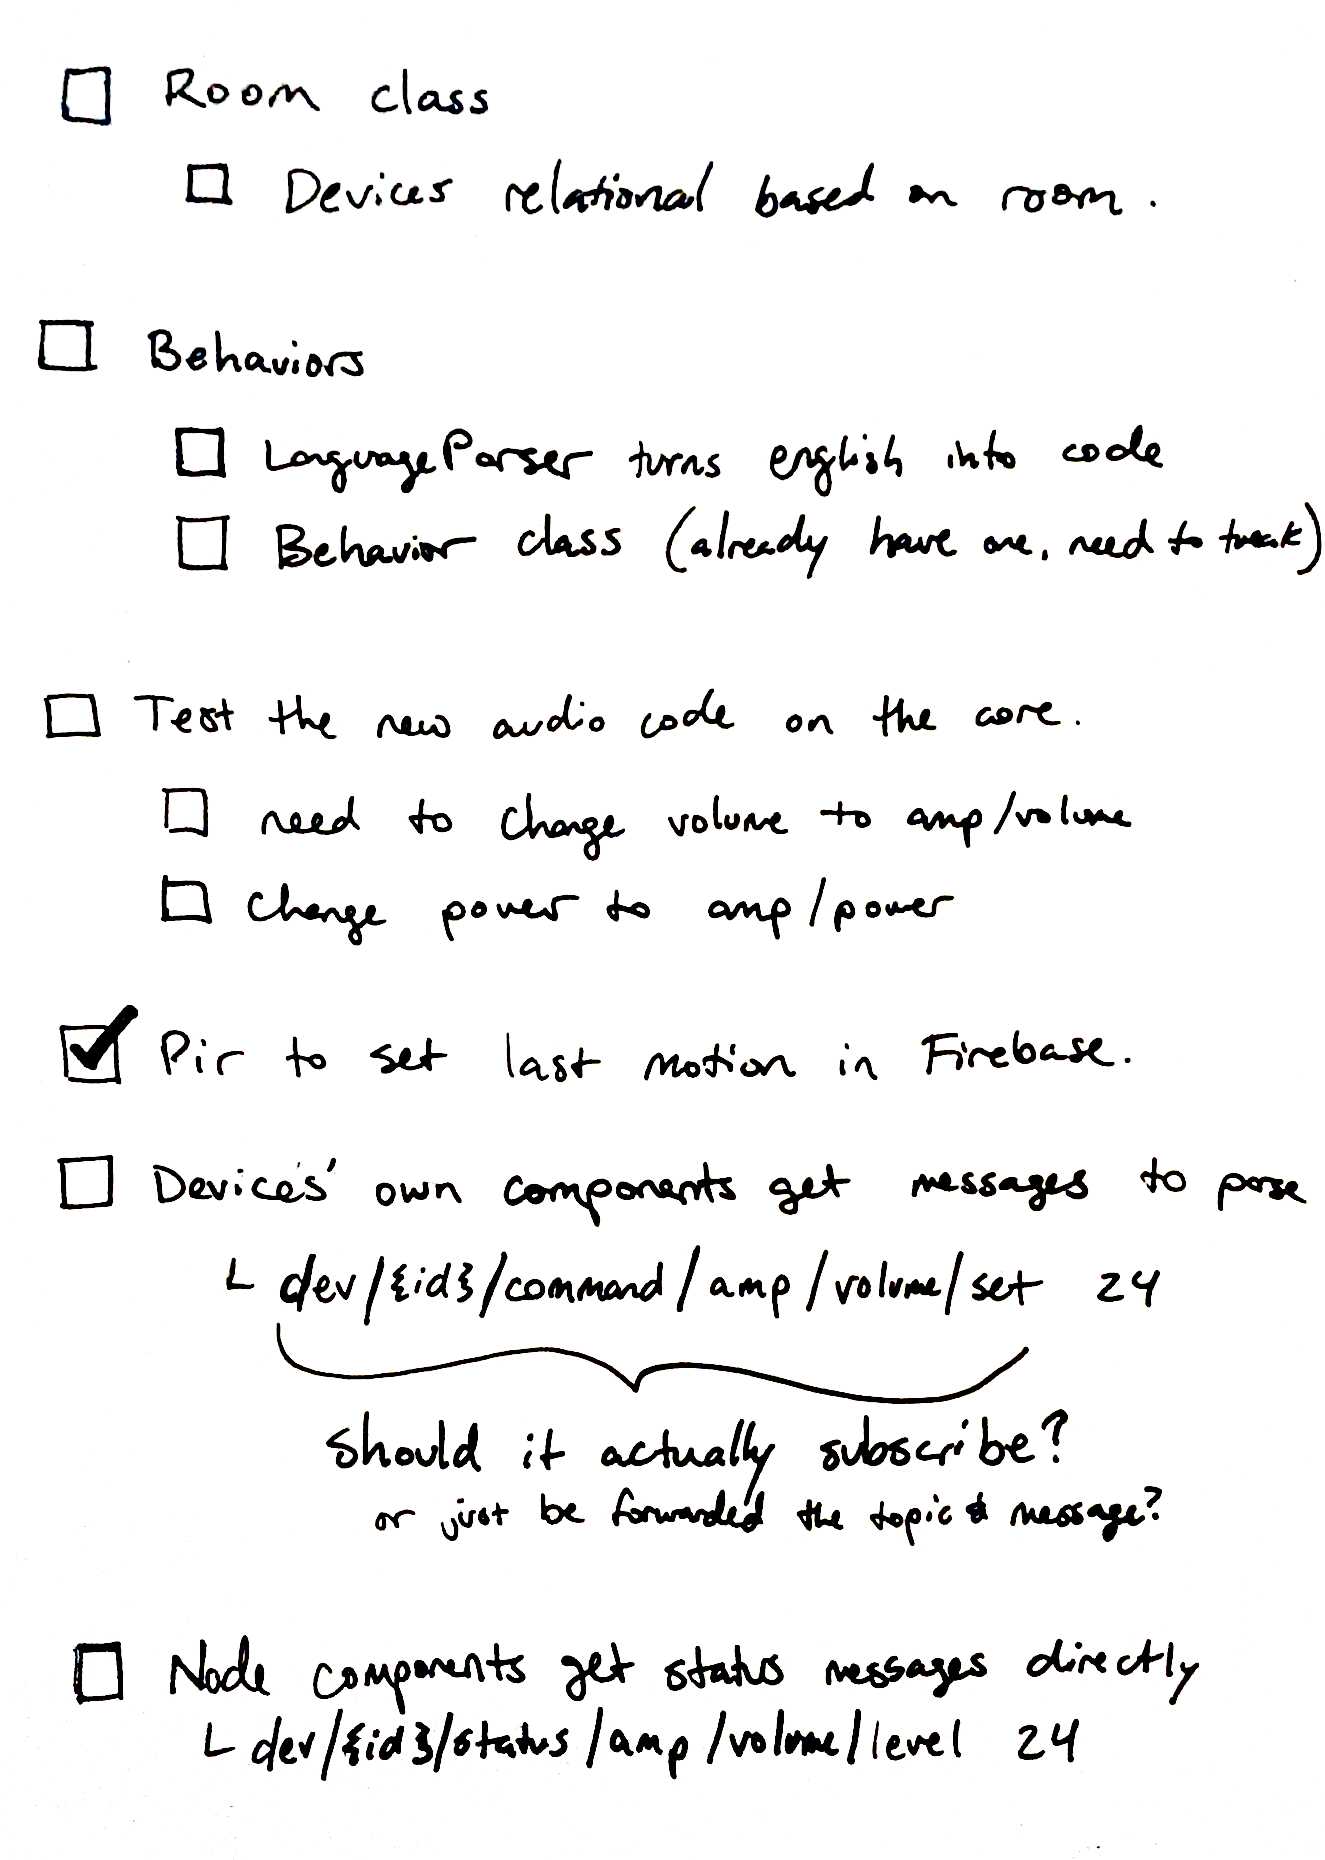 Room class
Devices relational based on room.
Behaviors
LanguageParser turns english into code
Behavior class (already have one, need to tweak)
Test the new audio code on the core.
need to change volume to amp/volume
change power to amp/power
Pir to set last motion in Firebase.
Devices' own components get messages to parse
dev/{id}/command/amp/volume/set 24
should it actually subscribe?
or just be forwarded the topic & message?
Node components get status messages directly
dev/{id}/status/amp/volume/level 24